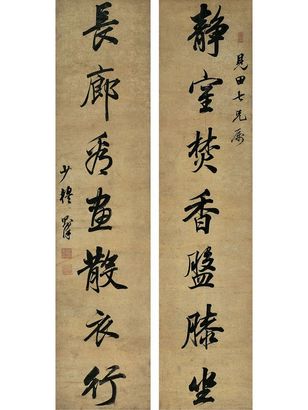 見田七兄屬
靜室焚香盤膝坐
長廊看畫散衣行
少穆